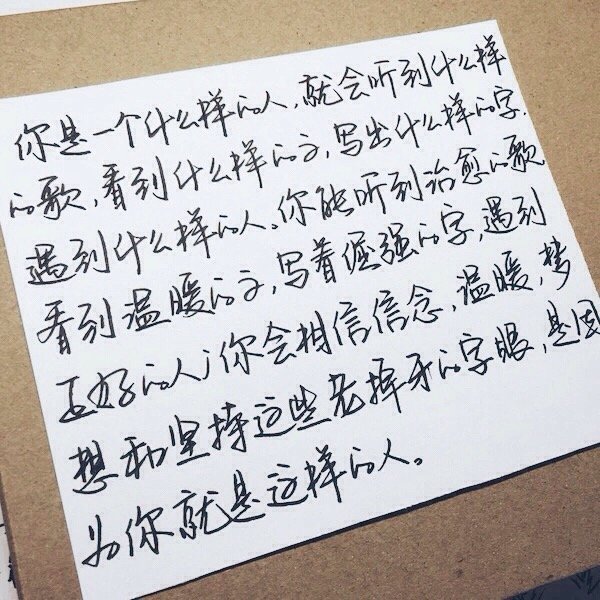 你是一个什么样的人,就会听到什么样
的歌,看到什么样的文,写出什么样的字,
遇到什么样的人。你能听到治愈的歌
看到温暖的文,写着倔强的字,遇到
正好的人,你会相信信念,温暖,梦
想和坚持这些老掉牙的字眼,是因
为你就是这样的人。